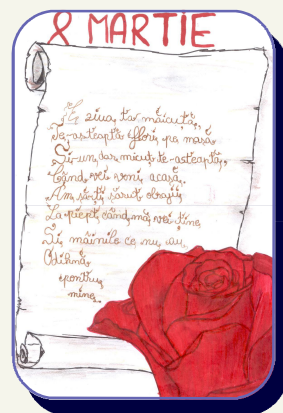 8 MARTIE
E ziua ta măicuță,
Te-așteaptă flori pe masă
Și-un dar micuț te-așteaptă,
Când vei veni acasă.
Am să-ți sărut obrajii
La piept, când mă vei ține
Și mâinile ce nu au
Odihnă
pentru
mine.